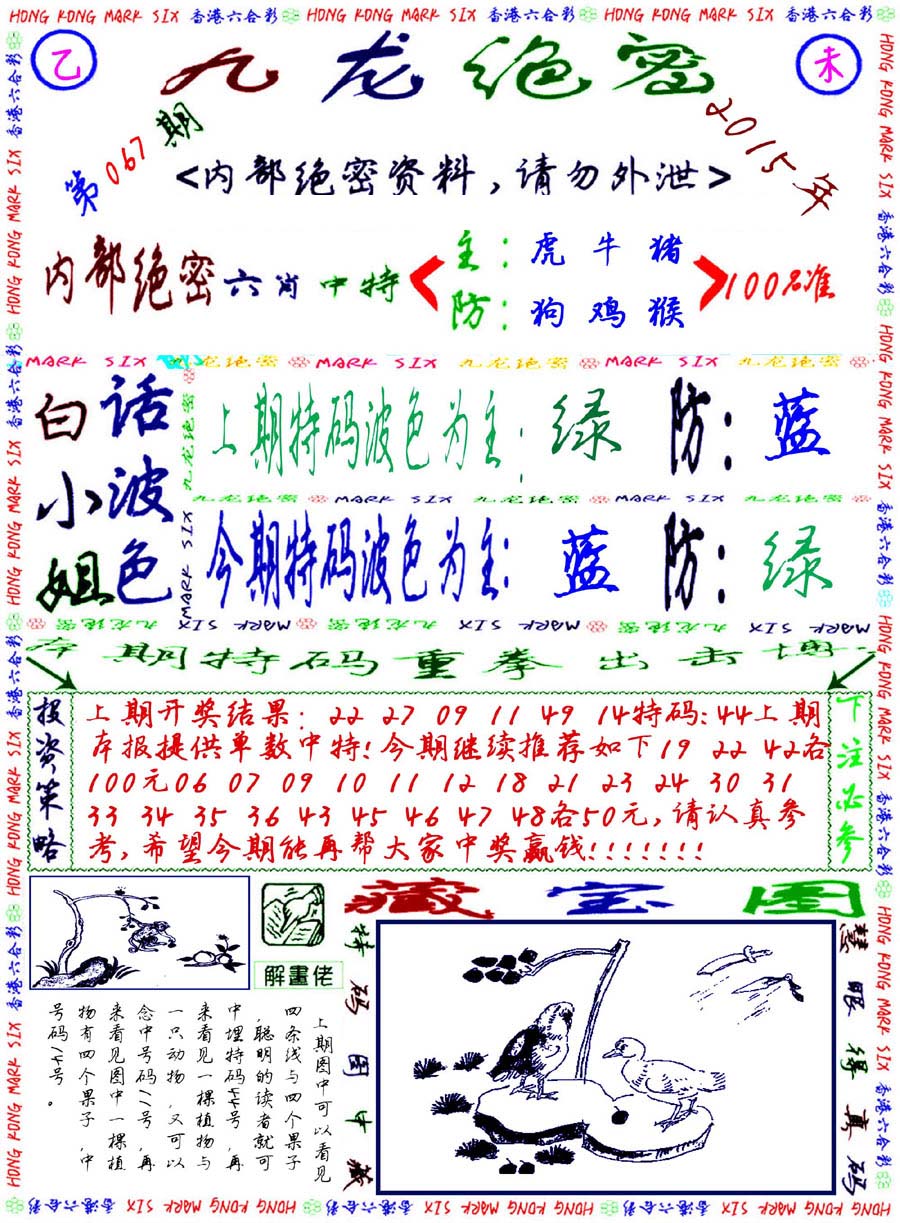 HONG KONG MARK SIX 香港六合彩 HONG KONG MARK SIX 香港六合彩 HONG KONG MARK SIX 香港六合彩
乙 九龙绝密 未
第067期
2015年
<内部绝密资料,请勿外泄>
内部绝密六肖中特
主:虎牛猪
防:狗鸡猴
100%准
MARK SIX 九龙绝密 MARK SIX 九龙绝密 MARK SIX 九龙绝密
白话
小波
姐色
上期特码波色为主:绿 防:蓝
九龙绝密 MARK SIX 九龙绝密 MARK SIX 九龙绝密
今期特码波色为主:蓝 防:绿
九龙绝密 MARK SIX 九龙绝密 MARK SIX 九龙绝密 MARK SIX
本期特码重拳出击博
投资策略
上期开奖结果:22 27 09 11 49 14特码:44上期
本报提供单数中特!今期继续推荐如下19 22 42各
100元06 07 09 10 11 12 18 21 23 24 30 31
33 34 35 36 43 45 46 47 48各50元,请认真参
考,希望今期能再帮大家中奖赢钱!!!!!!!
下注必参
藏宝图
解畫佬
上期图中可以看见
四条线与四个果子
,聪明的读者就可
中埋特码44号,再
来看见一棵植物与
一只动物,又可以
念中号码11号,再
来看见图中一棵植
物有四个果子,中
号码14号。
特码图中藏
慧眼得真码
HONG KONG MARK SIX 香港六合彩 HONG KONG MARK SIX 香港六合彩 HONG KONG MARK SIX 香港六合彩